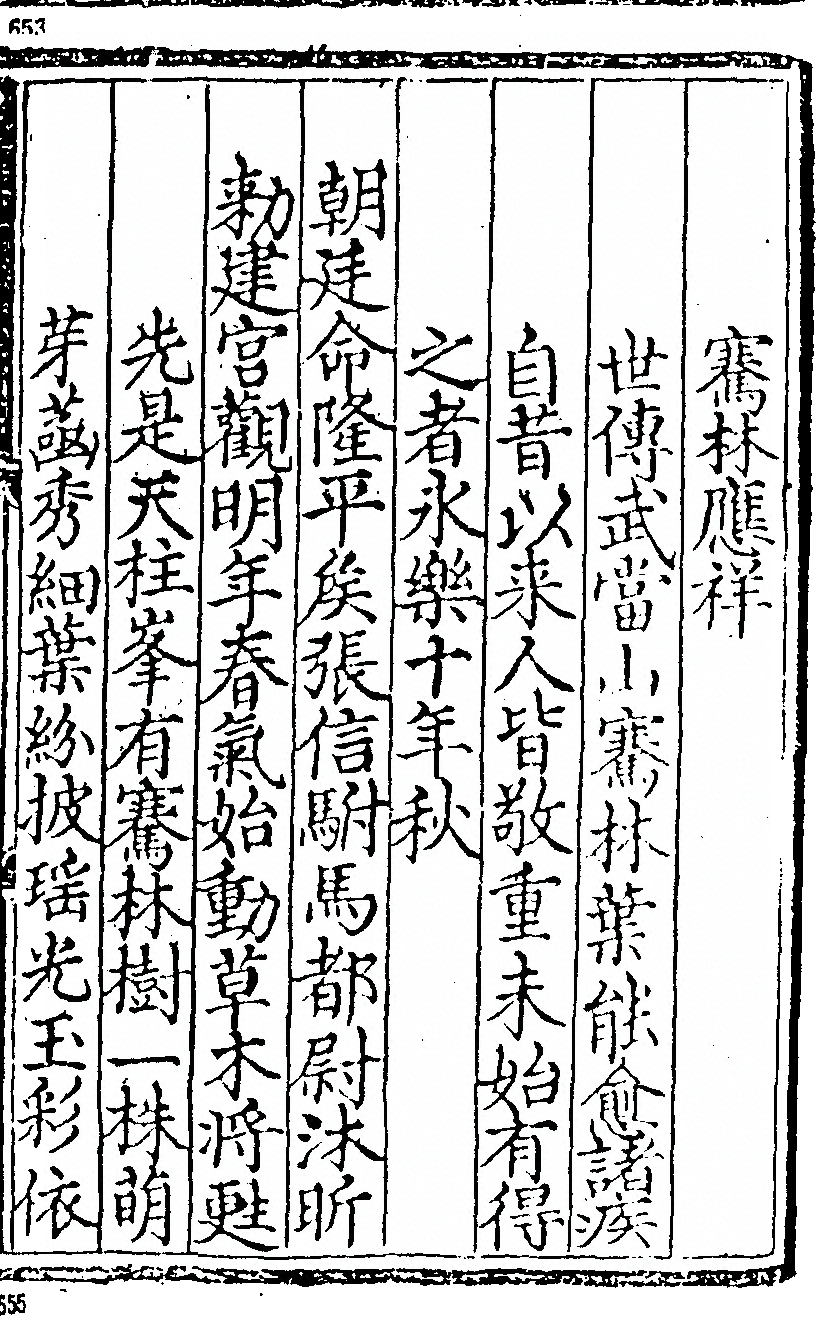 653
騫林應祥
世傳武當山騫林葉能愈諸疾
自昔以来人皆敬重未始有得
之者永樂十年秋
朝廷命隆平侯張信駙馬都尉沐昕
勑建宫觀明年春氣始動草木將甦
先是天柱峯有騫林樹一株萌
芽菡秀細葉紛披瑶光玉彩依
555